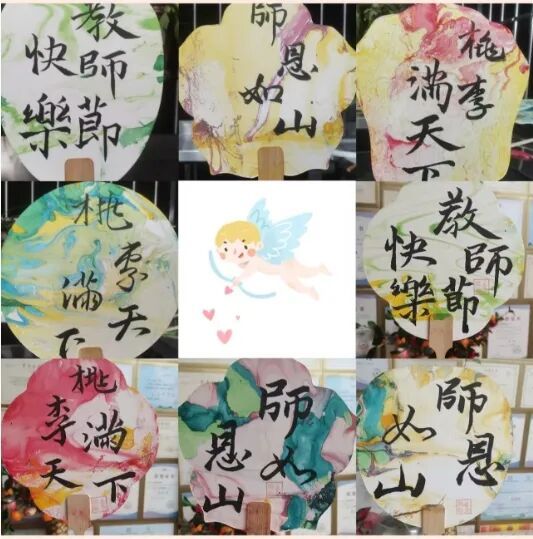 教師節
快樂
師恩
如山
桃李
滿天下
桃李
滿天下
教師節
快樂
桃李
滿天下
師恩
如山
師恩
如山